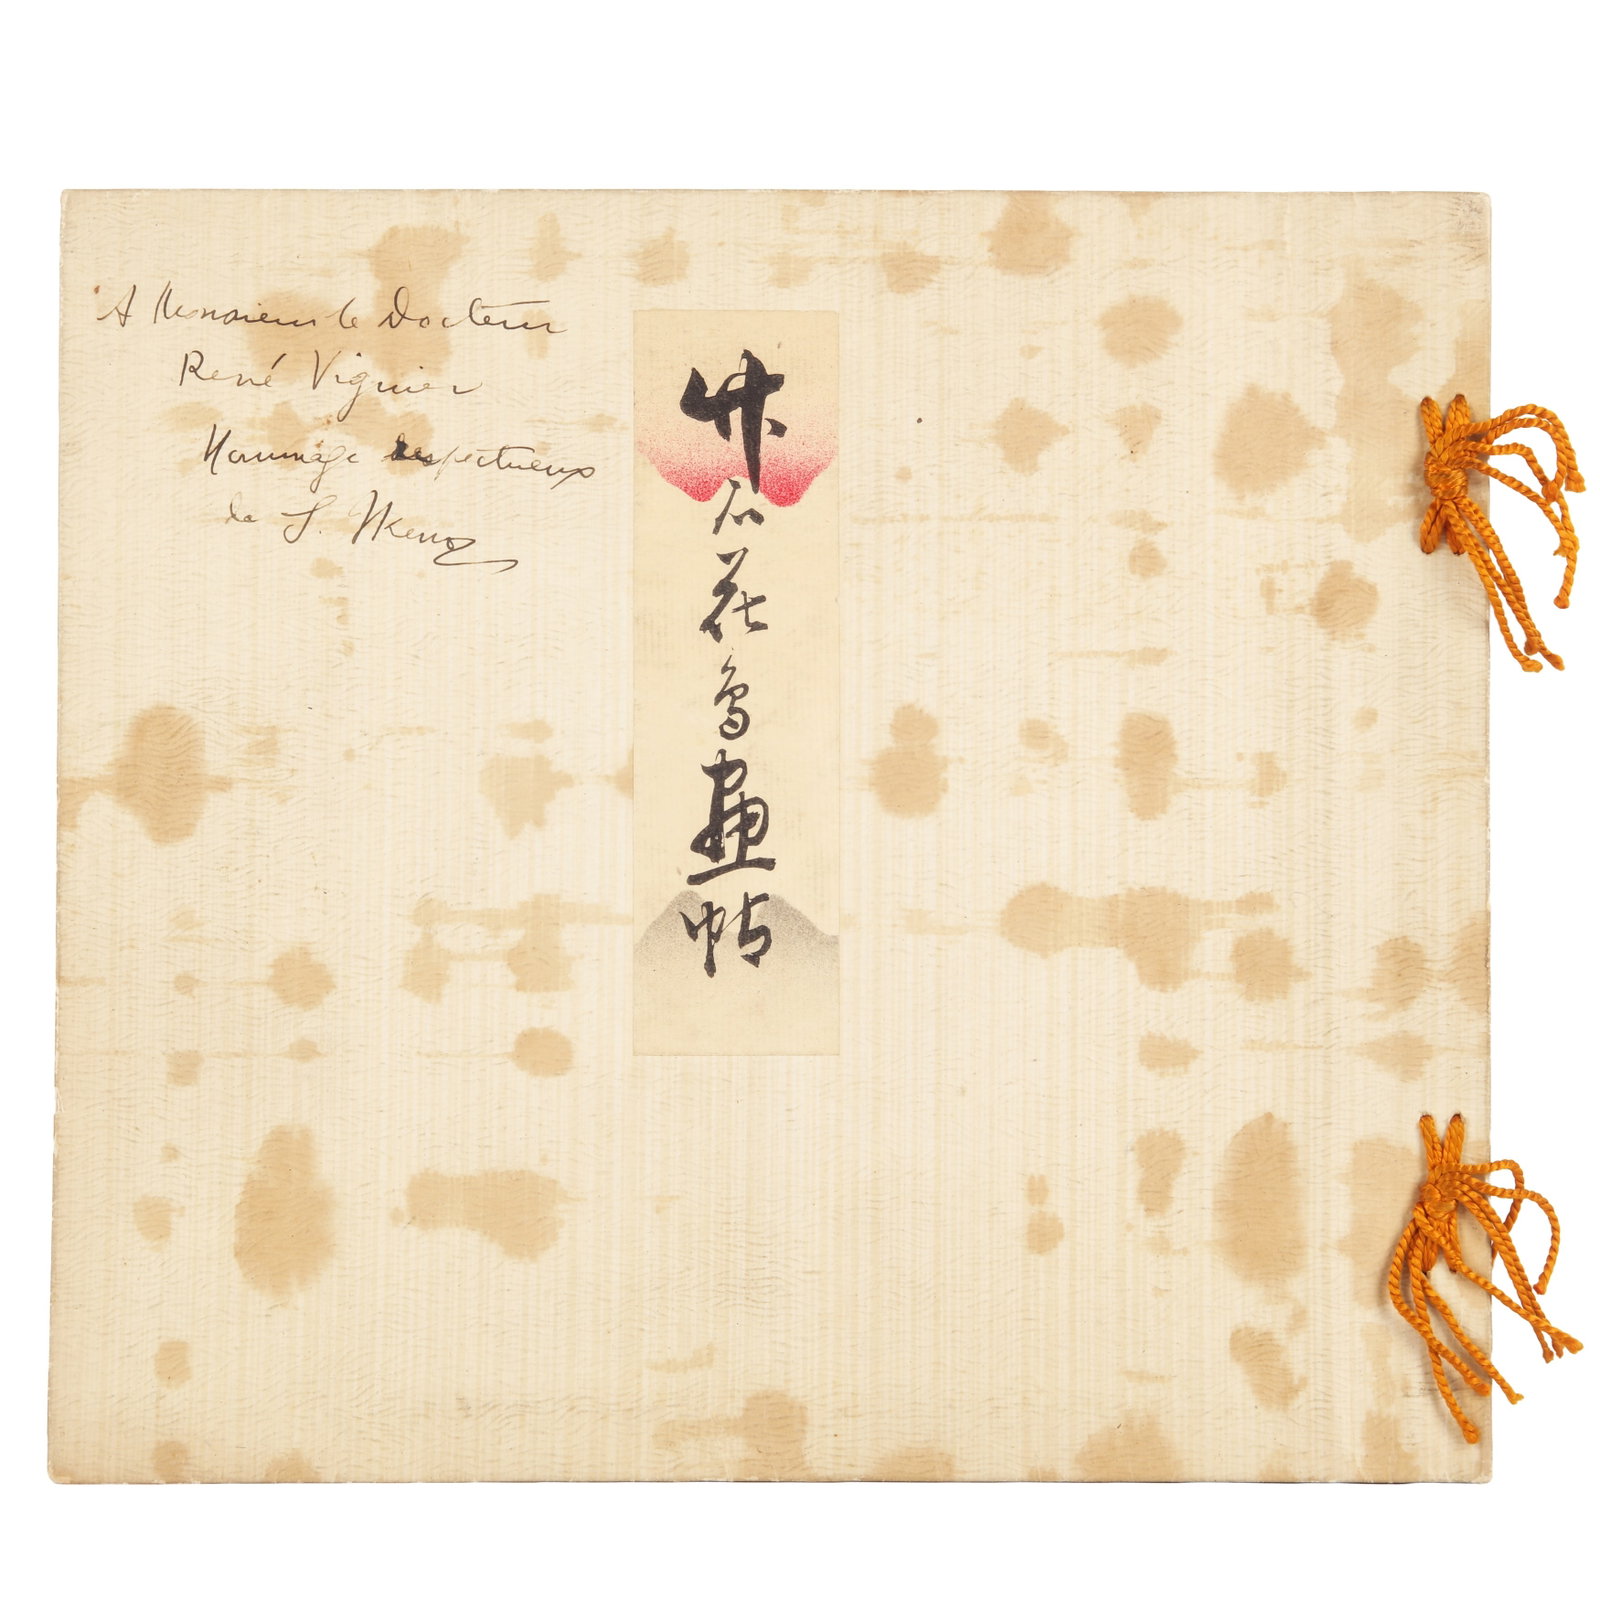 A Monsieur le Docteur
René Vignier
Hommage respectueux
de S. Ikeno
竹石花鳥画帖